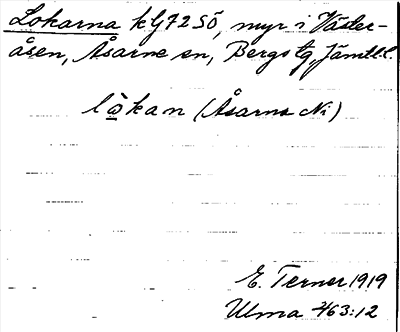 Lokarna kG72SÖ, myr i Väder-
åsen, Åsarne sn, Bergs tg, Jämtl. l.
lò̤kan (Åsarne Ni)
E. Terner 1919
Ulma 2/63:12